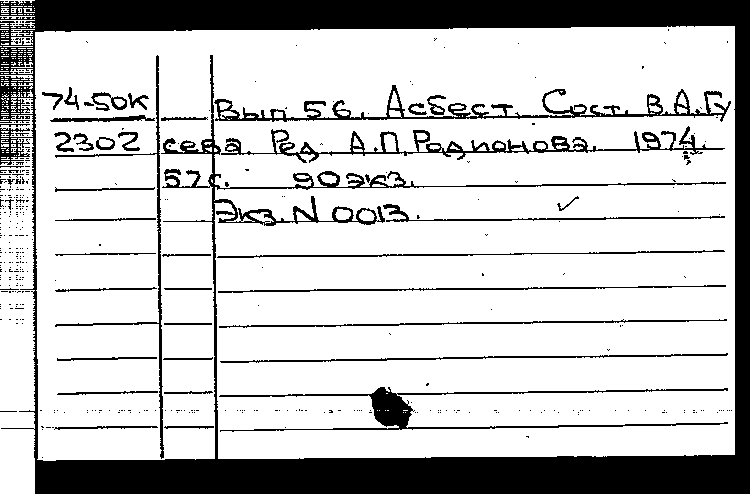 74-50К Вып. 56. Асбест. Сост. В.А.Гу
2302 сева. Ред. А.П.Родионова. 1974.
57с. 90экз.
Экз. N 0013.